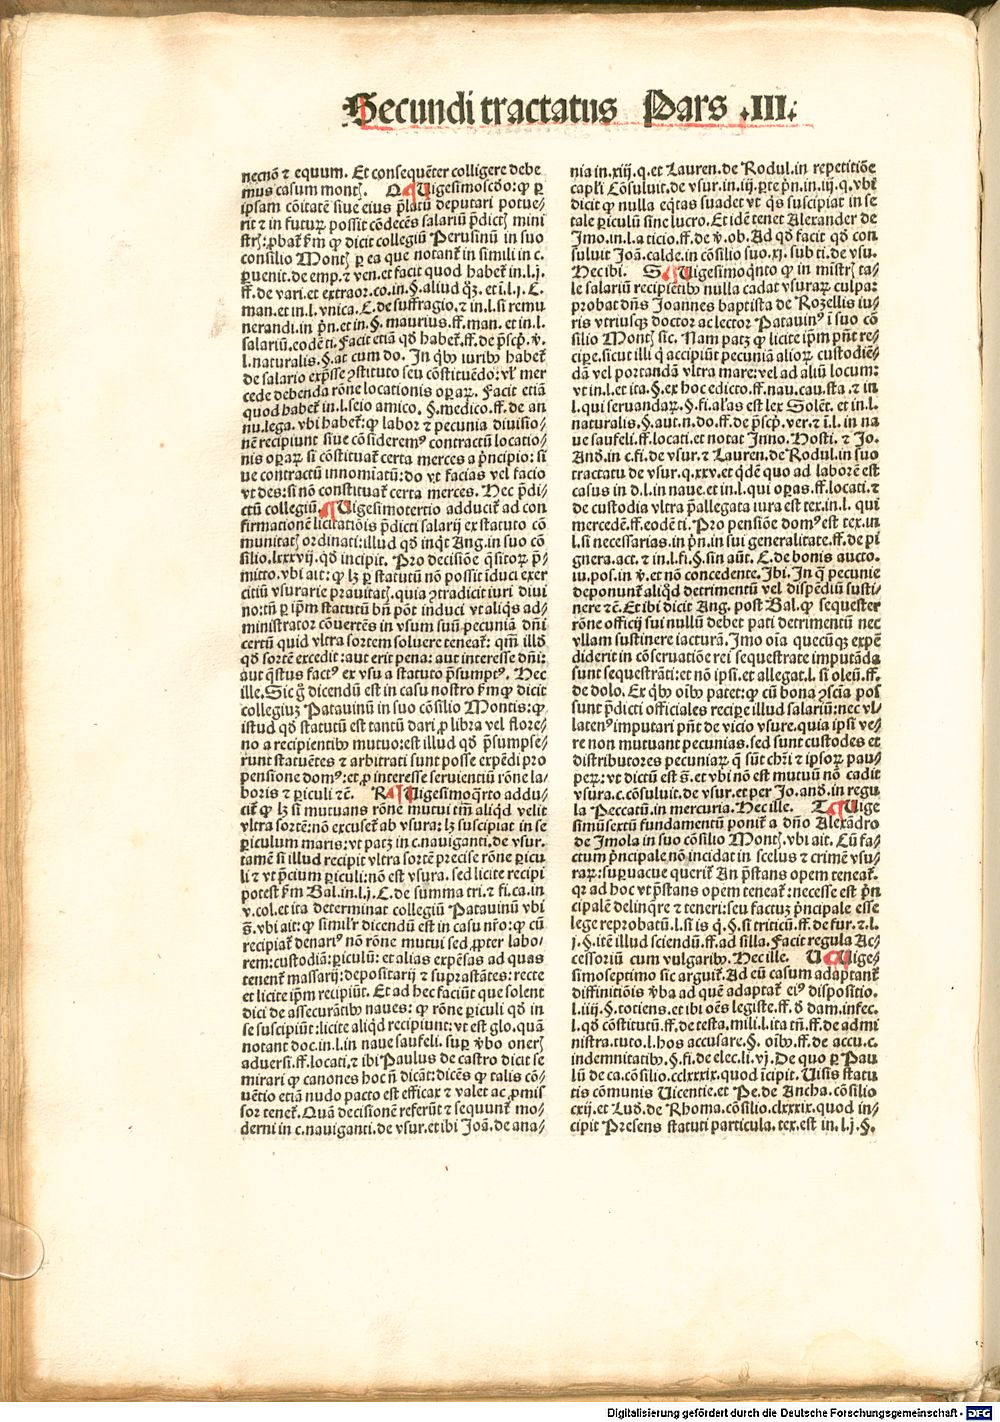 Secundi tractatus Pars .III.
necnō ⁊ equum. Et consequēter colligere debe
mus casum montꝭ. Q Uigesimoscd̄o: ꝙ ꝑ
ipsam cōitatē siue eius p̄latū deputari potue-
rit ⁊ in futurꝝ possit cōdecēs salariū p̄dictꝭ mini
strꝭ: ꝓbat̄ ẜm ꝙ dicit collegiū Perusinū in suo
consilio Montꝭ ꝑ ea que notant̄ in simili in c.
ꝑuenit. de emp. ⁊ ven. et facit quod habet̄ in.l.j.
ff. de vari. et extraor. co. in. §. aliud qꝫ. et ī.l.j. C.
man. et in.l. vnica. C. de suffragio. ⁊ in.l. si remu
nerandi. in pn̄. et in. §. maurius. ff. man. et in.l.
salariū. eodē ti. Facit etiā qđ habet̄. ff. de p̄scp̄. v̄.
l. naturalis. §. at cum do. In qƀꝰ iuribꝰ habet̄
de salario exp̄sse ꝯstituto seu cōstituēdo: vl̄ mer
cede debenda rōne locationis oꝑarꝝ. Facit etiā
quod habet̄ in.l. seio amico. §. medico. ff. de an
nu. lega. vbi habet̄: ꝙ labor ⁊ pecunia diuisio-
nē recipiunt siue cōsideremꝰ contractū locatio-
nis oꝑarꝝ si cōstituat̄ certa merces a p̄ncipio: si
ue contractū innomiatū: do vt facias vel facio
vt des: si nō constituat̄ certa merces. Hec p̄di-
ctū collegiū. Uigesimotertio adducit̄ ad con
firmationē licitatiōis p̄dicti salarij ex statuto cō
munitatꝭ ordinati: illud qđ inqͥt Ang. in suo cō
silio. lxxxvij. qđ incipit. Pro decisiōe qͣsitorꝝ p̄-
mitto. vbi ait: ꝙ lꝫ ꝑ statutū nō possit īduci exer
citiū vsurarie prauitatꝭ. quia ꝯtradicit iuri diui
no: tn̄ ꝑ ip̄m statutū bn̄ pōt induci vt aliqͥs ad-
ministrator cōuertēs in vsum suū pecuniā dn̄i
certū quid vltra sortem soluere teneat̄: qm̄ illđ
qđ sortē excedit: aut erit pena: aut interesse dn̄i:
aut qͣstus factꝰ ex vsu a statuto p̄sumptꝰ. Hec
ille. Sic g̊ dicendū est in casu nostro ẜm ꝙ dicit
collegiuꝫ Patauinū in suo cōsilio Montis: ꝙ
istud qđ statutū est tantū dari ꝓ libra vel flore-
no a recipientibꝰ mutuo: est illud qđ p̄sumpse-
runt statuētes ⁊ arbitrati sunt posse expēdi pro
pensione domꝰ: et ꝓ interesse seruientiū rōne la-
boris ⁊ ꝑiculi ⁊c̄. R Uigesimoqͣrto addu-
cit̄ ꝙ lꝫ si mutuans rōne mutui tm̄ aliqd velit
vltra sortē: nō excuset̄ ab vsura: lꝫ suscipiat in se
ꝑiculum maris: vt patꝫ in c. nauiganti. de vsur.
tamē si illud recipit vltra sortē precise rōne ꝑicu
li ⁊ vt p̄cium ꝑiculi: nō est vsura. sed licite recipi
potest ẜm Bal. in.l.j. C. de summa tri. ⁊ fi. ca. in
v. col. et ita determinat collegiū Patauinū vbi
s̄. vbi ait: ꝙ similr̄ dicendū est in casu nr̄o: ꝙ cū
recipiat̄ denariꝰ nō rōne mutui sed ꝓpter labo-
rem: custodiā: ꝑiculū: et alias expēsas ad quas
tenent̄ massarij: depositarij ⁊ suprastātes: recte
et licite ip̄m recipiūt. Et ad hec faciūt que solent
dici de assecurātibꝰ naues: ꝙ rōne ꝑiculi qđ in
se suscipiūt: licite aliqd recipiunt: vt est glo. quā
notant doc. in.l. in naue saufeli. suꝑ v̄bo onerꝭ
aduersi. ff. locati. ⁊ ibi Paulus de castro dicit se
mirari ꝙ canones hoc n̄ dicāt: dicēs ꝙ talis cō-
uētio etiā nudo pacto est efficax ⁊ valet ac ꝓmis
sor tenet̄. Quā decisionē referūt ⁊ sequunt̄ mo-
derni in c. nauiganti. de vsur. et ibi Joā. de ana-
nia in. xiij. q. et Lauren. de Rodul. in repetitiōe
capl̄i Cōsuluit. de vsur. in. iij. ꝑte pn̄. in. iij. q. vbi
dicit ꝙ nulla eqͣtas suadet vt qͥs suscipiat in se
tale ꝑiculū sine lucro. Et idē tenet Alexander de
Imo. in.l. a ticio. ff. de v̄. ob. Ad qđ facit qđ con
suluit Joā. calde. in cōsilio suo. xj. sub ti. de vsu.
Hec ibi. S Uigesimoqͥnto ꝙ in mistrꝭ ta-
le salariū recipiētibꝰ nulla cadat vsurarꝝ culpa:
probat dn̄s Joannes baptista de Rozellis iu-
ris vtriusqꝫ doctor ac lector Patauinꝰ ī suo cō
silio Montꝭ sic. Nam patꝫ ꝙ licite ip̄m pn̄t re-
ciꝑe. sicut illi qͥ accipiūt pecuniā aliorꝝ custodiē-
dā vel portandā vltra mare: vel ad aliū locum:
vt in.l. et ita. §. ex hoc edicto. ff. nau. cau. sta. ⁊ in
l. qui seruandarꝝ. §. fi. al̄as est lex Solēt. et in.l.
naturalis. §. aut. n. do. ff. de p̄scp̄. ver. ⁊ ī.l. in na
ue saufeli. ff. locati. et notat Inno. Hosti. ⁊ Jo.
And̄. in c. fi. de vsur. ⁊ Lauren. de Rodul. in suo
tractatu de vsur. q. xxv. et qͥdē quo ad laborē est
casus in d.l. in naue. et in.l. qui oꝑas. ff. locati. ⁊
de custodia vltra p̄allegata iura est tex. in.l. qui
mercedē. ff. eodē ti. Pro pensiōe domꝰ est tex. in
l. si necessarias. in pn̄. in sui generalitate. ff. de pi
gnera. act. ⁊ in.l. fi. §. sin aūt. C. de bonis aucto.
iu. pos. in v̄. et nō concedente. Ibi. In qͣ pecunie
deponunt̄ aliqd detrimentū vel dispēdiū susti-
nere ⁊c̄. Et ibi dicit Ang. post Bal. ꝙ sequester
rōne officij sui nullū debet pati detrimentū nec
vllam sustinere iacturā. Imo oīa quecūqꝫ expē
diderit in cōseruatiōe rei sequestrate imputāda
sunt sequestrāti: et nō ipsi. et allegat.l. si oleū. ff.
de dolo. Ex qƀꝰ oībꝰ patet: ꝙ cū bona ꝯscīa pos
sunt p̄dicti officiales reciꝑe illud salariū: nec vl-
latenꝰ imputari pn̄t de vicio vsure. quia ipsi ve-
re non mutuant pecunias. sed sunt custodes et
distributores pecuniarꝝ q̄ sūt chr̄i ⁊ ipsorꝝ pau-
perꝝ: vt dictū est s̄. et vbi nō est mutuū nō cadit
vsura. c. cōsuluit. de vsur. et per Jo. and̄. in regu
la Peccatū. in mercuria. Hec ille. T Uige
simūsextū fundamentū ponit̄ a dn̄o Alexādro
de Imola in suo cōsilio Montꝭ. vbi ait. Cū fa-
ctum p̄ncipale nō incidat in scelus ⁊ crimē vsu-
rarꝝ: suꝑuacue querit̄ An p̄stans opem teneat̄.
qꝛ ad hoc vt p̄stans opem teneat̄: necesse est p̄n
cipalē delinqͣre ⁊ teneri: seu factuꝫ p̄ncipale esse
lege reprobatū. l. si is qͥ. §. si triticū. ff. de fur. ⁊.l.
j. §. itē illud sciendū. ff. ad silla. Facit regula Ac-
cessoriū cum vulgaribꝰ. Hec ille. U Uige-
simoseptimo sic arguit̄. Ad eū casum adaptant̄
diffinitiōis v̄ba ad quē adaptat̄ eiꝰ dispositio.
l. iiij. §. totiens. et ibi oēs legiste. ff. đ dam. infec.
l. qđ cōstitutū. ff. de testa. mili. l. ita tn̄. ff. de admi
nistra. tuto. l. hos accusare. §. oībꝰ. ff. de accu. c.
indemnitatibꝰ. §. fi. de elec. li. vj. De quo ꝑ Pau
lū de ca. cōsilio. cclxxxix. quod īcipit. Uisis statu
tis cōmunis Uicentie. et Pe. de Ancha. cōsilio
cxij. et Lud̄. de Rhoma. cōsilio. clxxxix. quod in-
cipit Presens statuti particula. tex. est in.l.j. §.
Digitalisierung gefördert durch die Deutsche Forschungsgemeinschaft - DFG